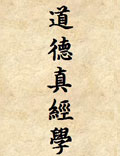 道德真經學